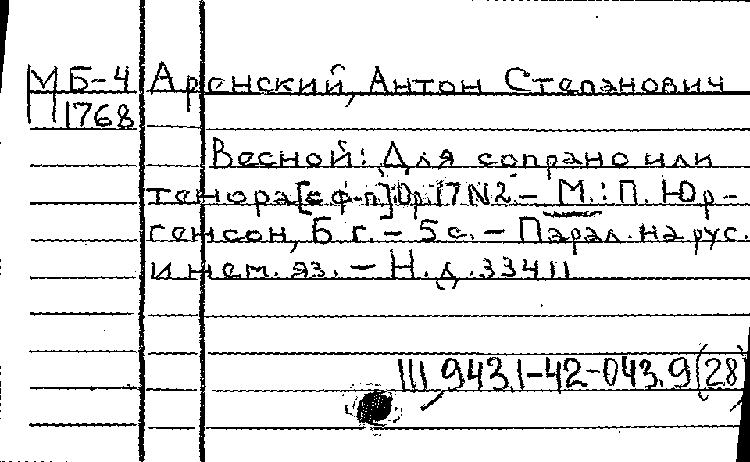 МБ-4 Аренский, Антон Степанович
1768
Весной: Для сопрано или
тенора [с ф-п]. Op. 17 N2. - М.: П. Юр-
генсон, Б г. - 5 с. - Парал. на рус.
и нем. яз. - Н. д. 33411
Ш 943.1-42-043.9(28)